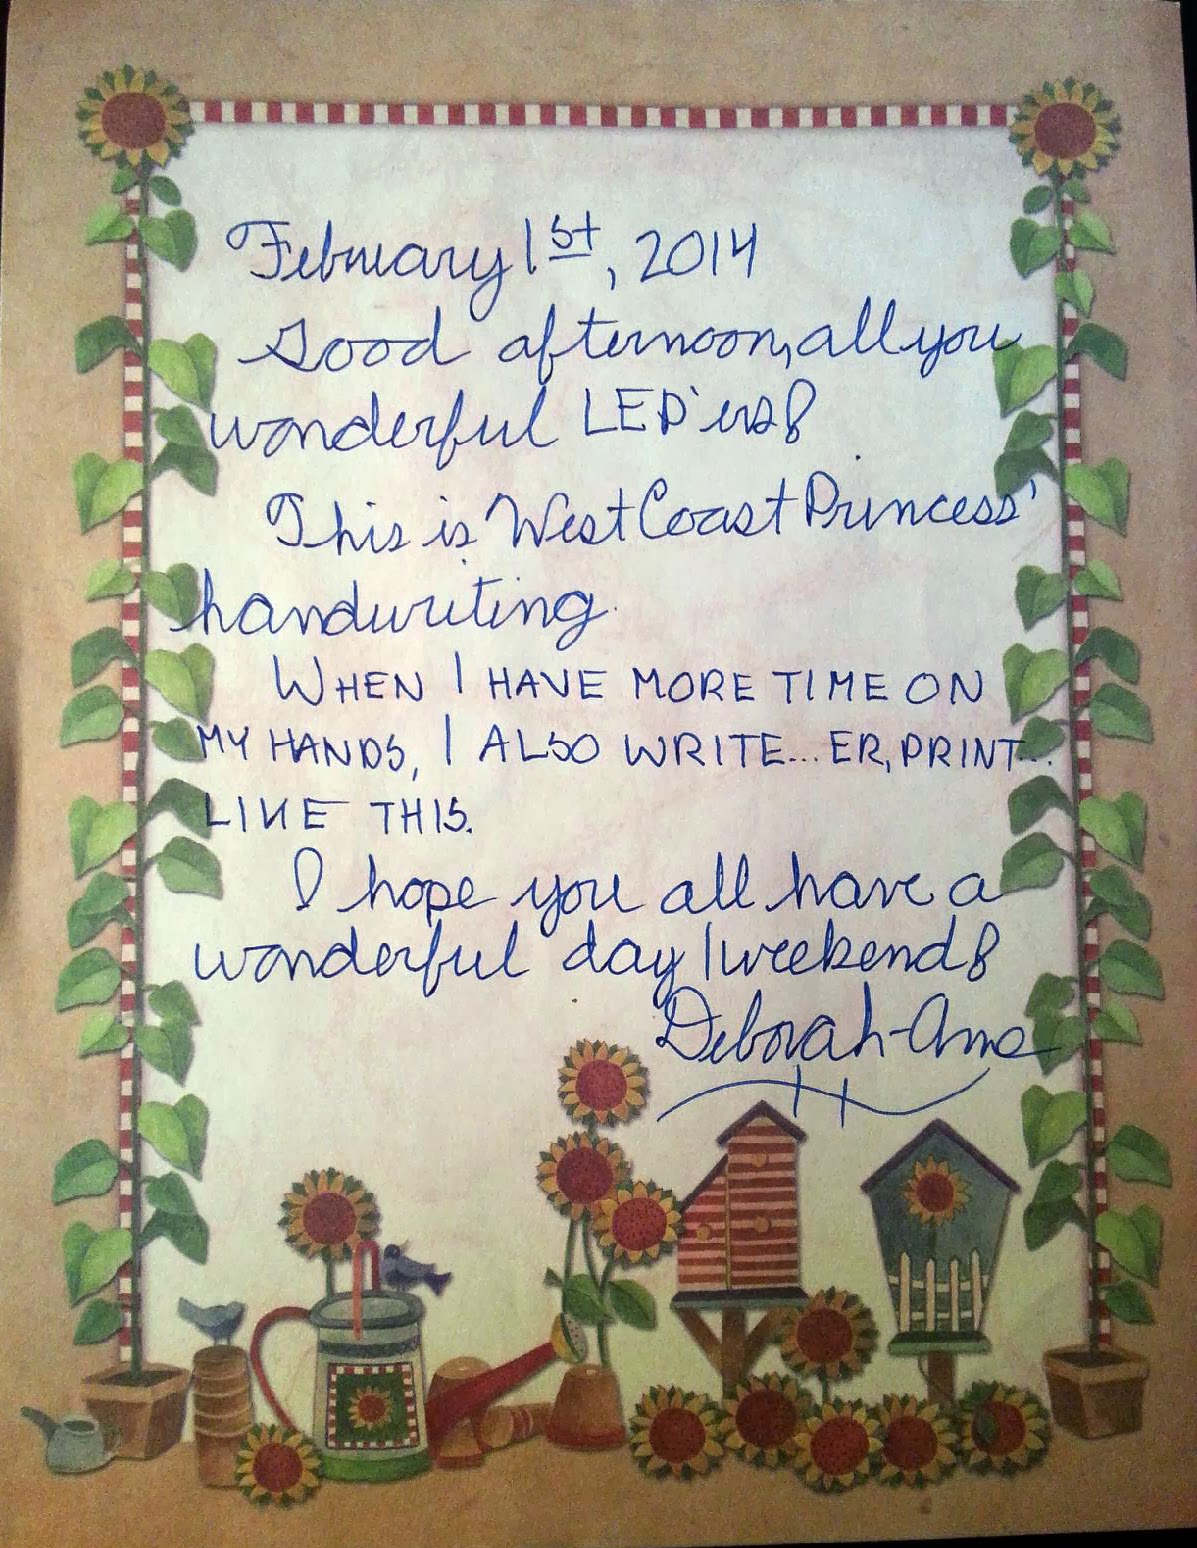 February 1st, 2014
Good afternoon, all you
wonderful LEP'ers!
This is West Coast Princess'
handwriting.
WHEN I HAVE MORE TIME ON
MY HANDS, I ALSO WRITE... ER, PRINT...
LIKE THIS.
I hope you all have a
wonderful day/weekend!
Deborah-Anne